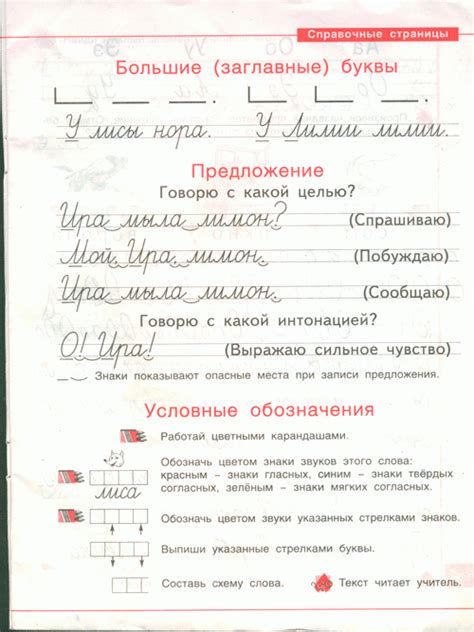 Справочные страницы
Большие (заглавные) буквы
У лисы нора. У Лилии лилии.
Предложение
Говорю с какой целью?
Ира мыла лимон? (Спрашиваю)
Мой, Ира, лимон. (Побуждаю)
Ира мыла лимон. (Сообщаю)
Говорю с какой интонацией?
О! Ира! (Выражаю сильное чувство)
Знаки показывают опасные места при записи предложения.
Условные обозначения
Работай цветными карандашами.
Обозначь цветом знаки звуков этого слова:
красным – знаки гласных, синим – знаки твёрдых
согласных, зелёным – знаки мягких согласных.
лиса
Обозначь цветом звуки указанных стрелками знаков.
Выпиши указанные стрелками буквы.
Составь схему слова. Текст читает учитель.